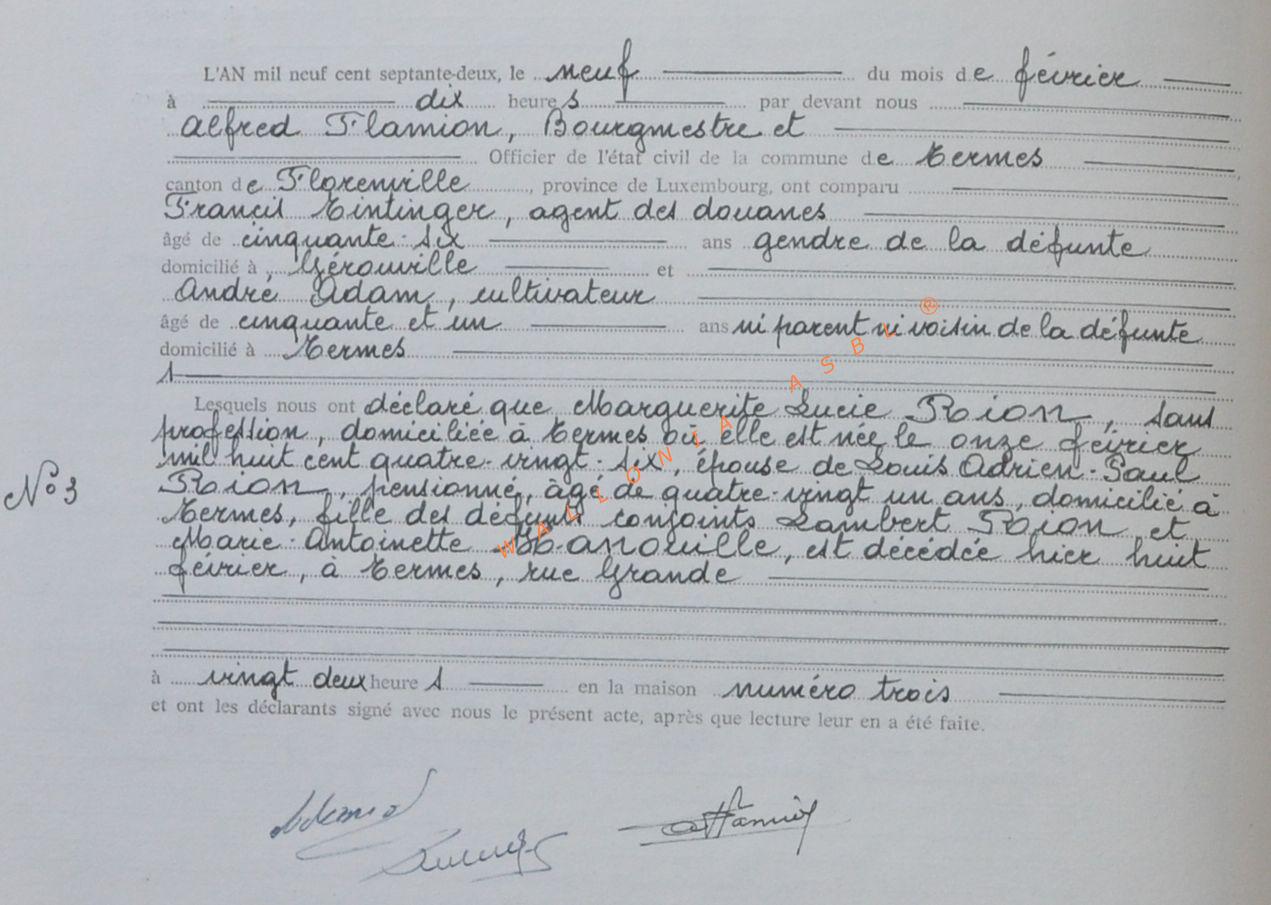 L'AN mil neuf cent septante-deux, le neuf du mois de février
à dix heures par devant nous
Alfred Flamion, Bourgmestre et
Officier de l'état civil de la commune de Termes
canton de Florenville, province de Luxembourg, ont comparu
Francis Tintinger, agent des douanes
âgé de cinquante-six ans gendre de la défunte
domicilié à, Gérouville et
André Adam, cultivateur
âgé de cinquante et un ans ni parent ni voisin de la défunte
domicilié à Termes
s
Lesquels nous ont déclaré que Marguerite Lucie Roion, sans
profession, domiciliée à Termes où elle est née le onze février
mil huit cent quatre-vingt-six, épouse de Louis Adrien-Paul
N° 3
Roion, pensionné, âgé de quatre-vingt un ans, domicilié à
Termes, fille des défunts conjoints Lambert Roion et
Marie-Antoinette Hanouille, est décédée hier huit
février, à Termes, rue Grande
à vingt deux heures en la maison numéro trois
et ont les déclarants signé avec nous le présent acte, après que lecture leur en a été faite.
WALLONIA ASBL ®